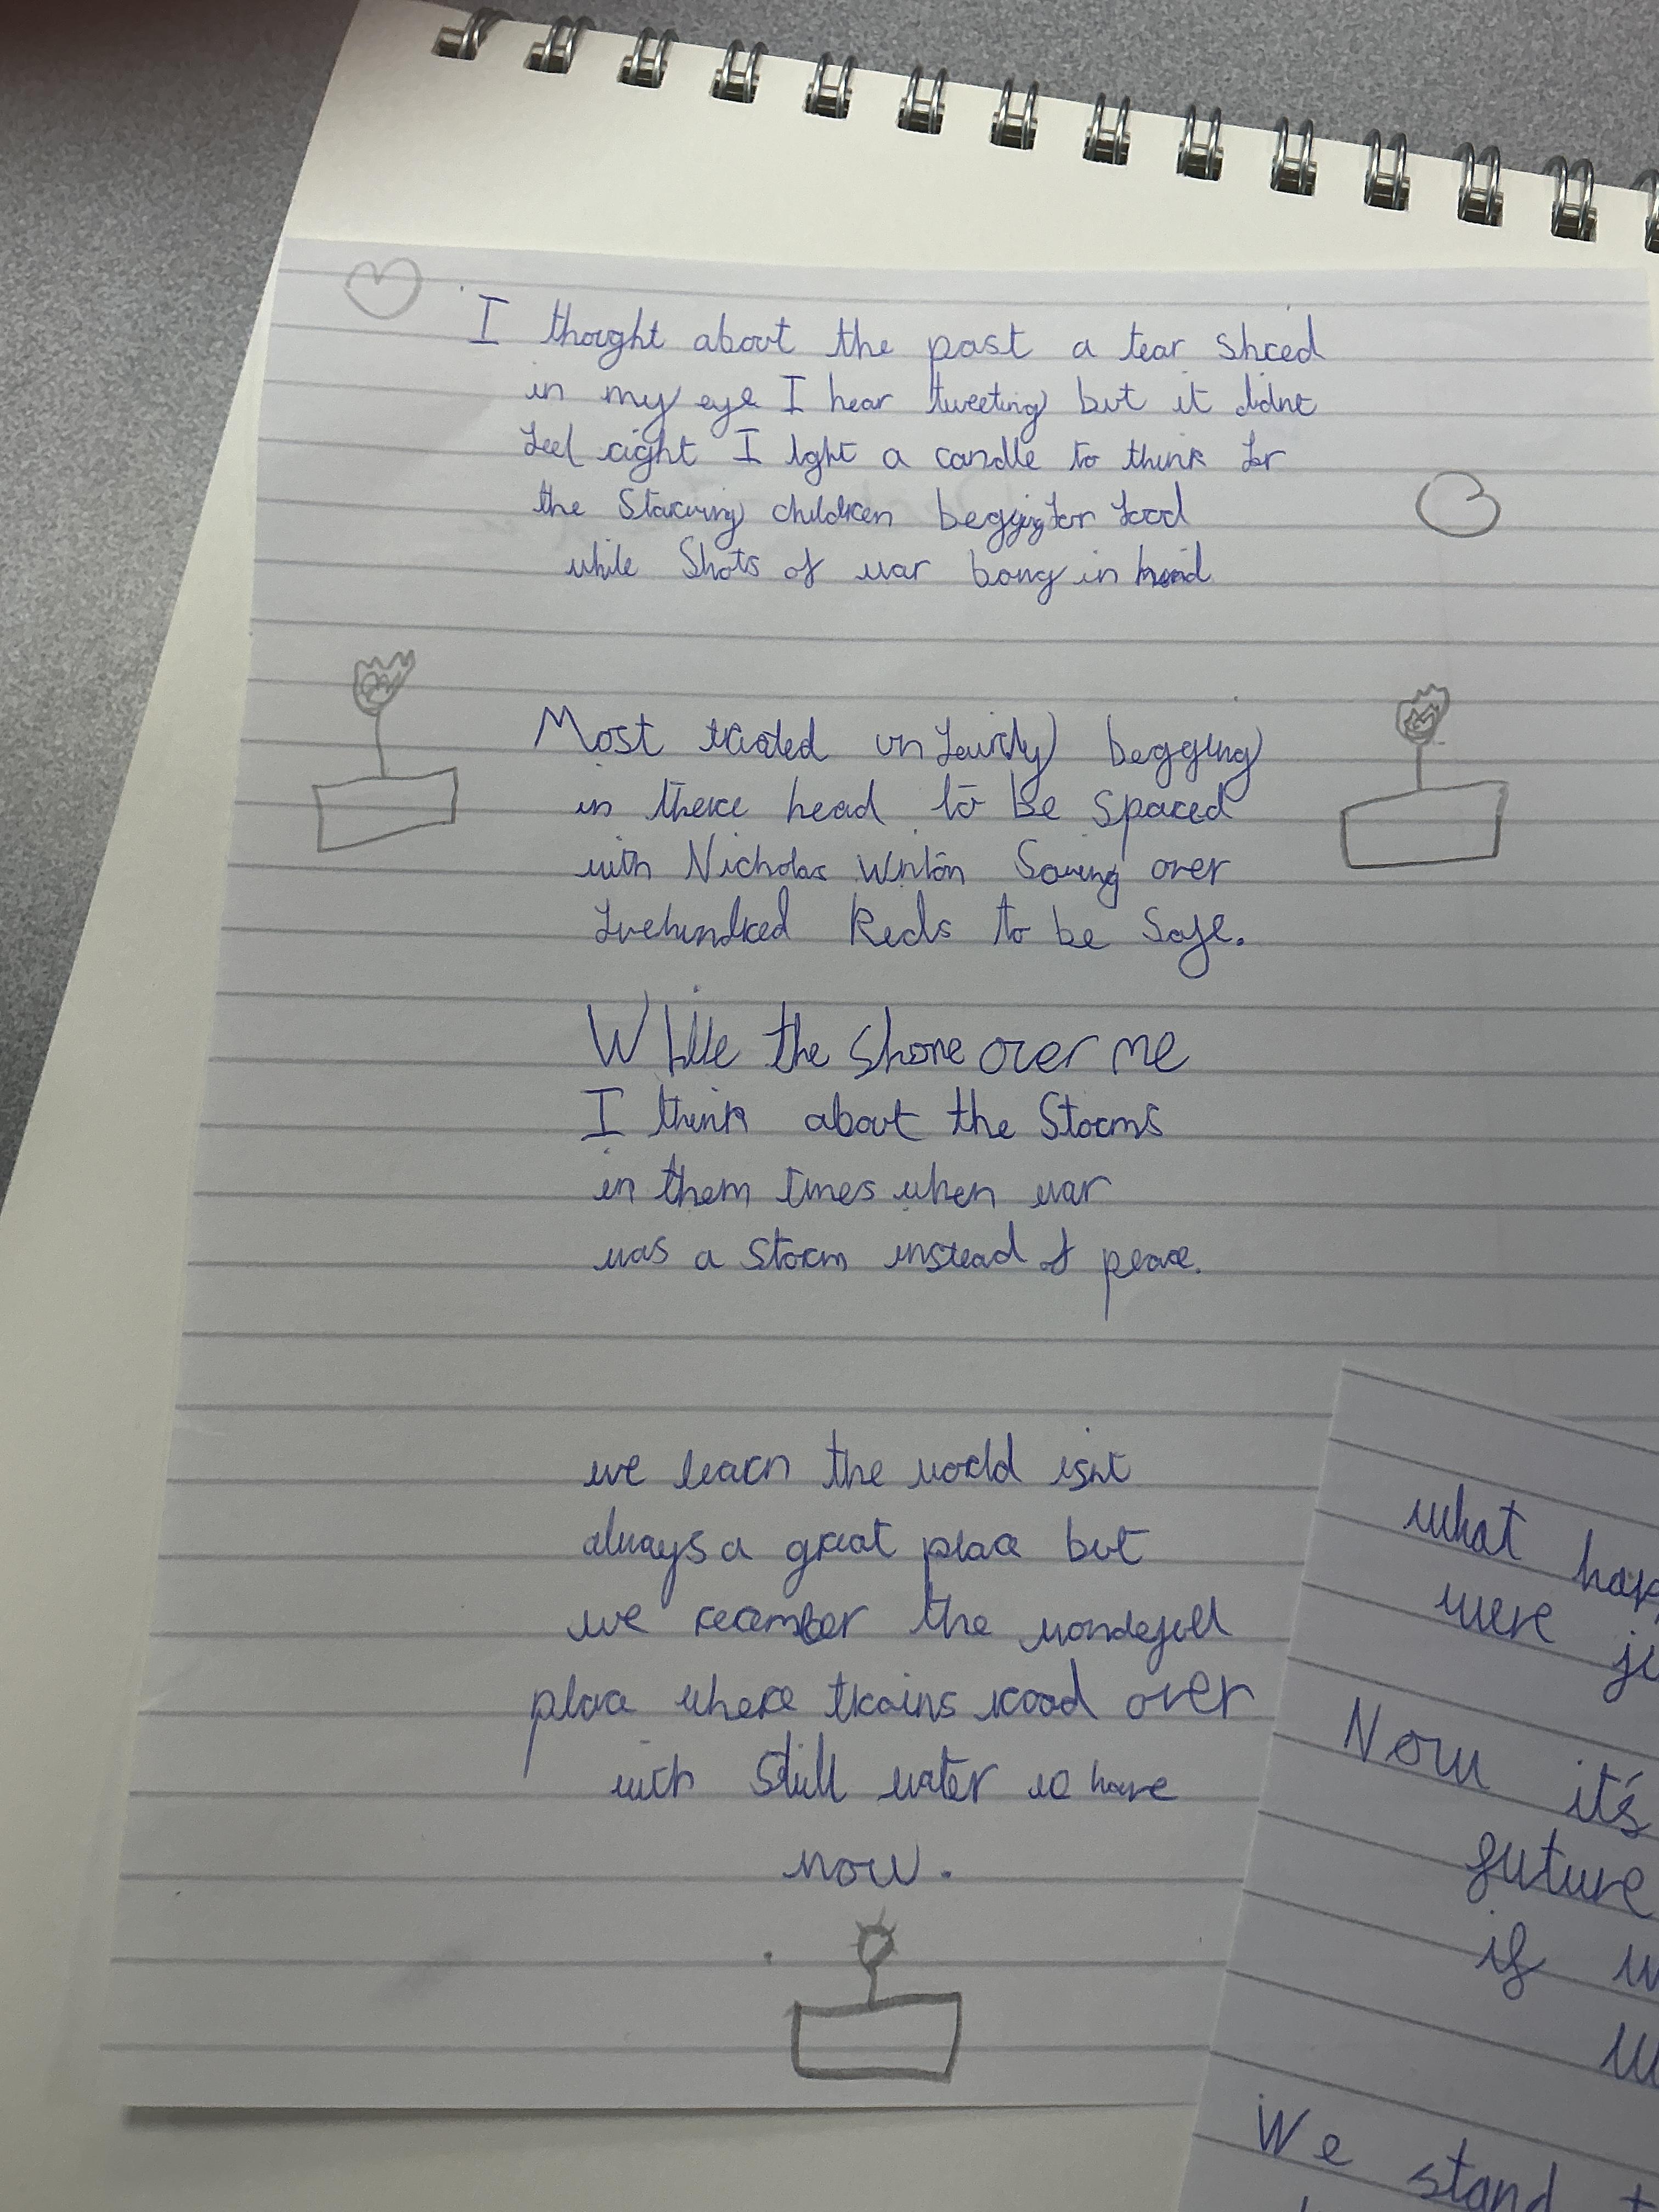 I thought about the past a tear shred
in my eye I hear tweeting but it didnt
feel right I light a candle to think for
the Starving children begging for food
while Shots of war bang in hand
Most treated unfairly begging
in there head to be spared
with Nicholas Winton Saving over
fivehundred Keds to be Safe.
While the shone over me
I think about the Storms
in them times when war
was a storm instead of peace.
we learn the world isnt
always a great place but
we recember the wondefull
place where trains road over
with still water we have
now.
what hap
were ju
Now it's
future
if w
We stand t